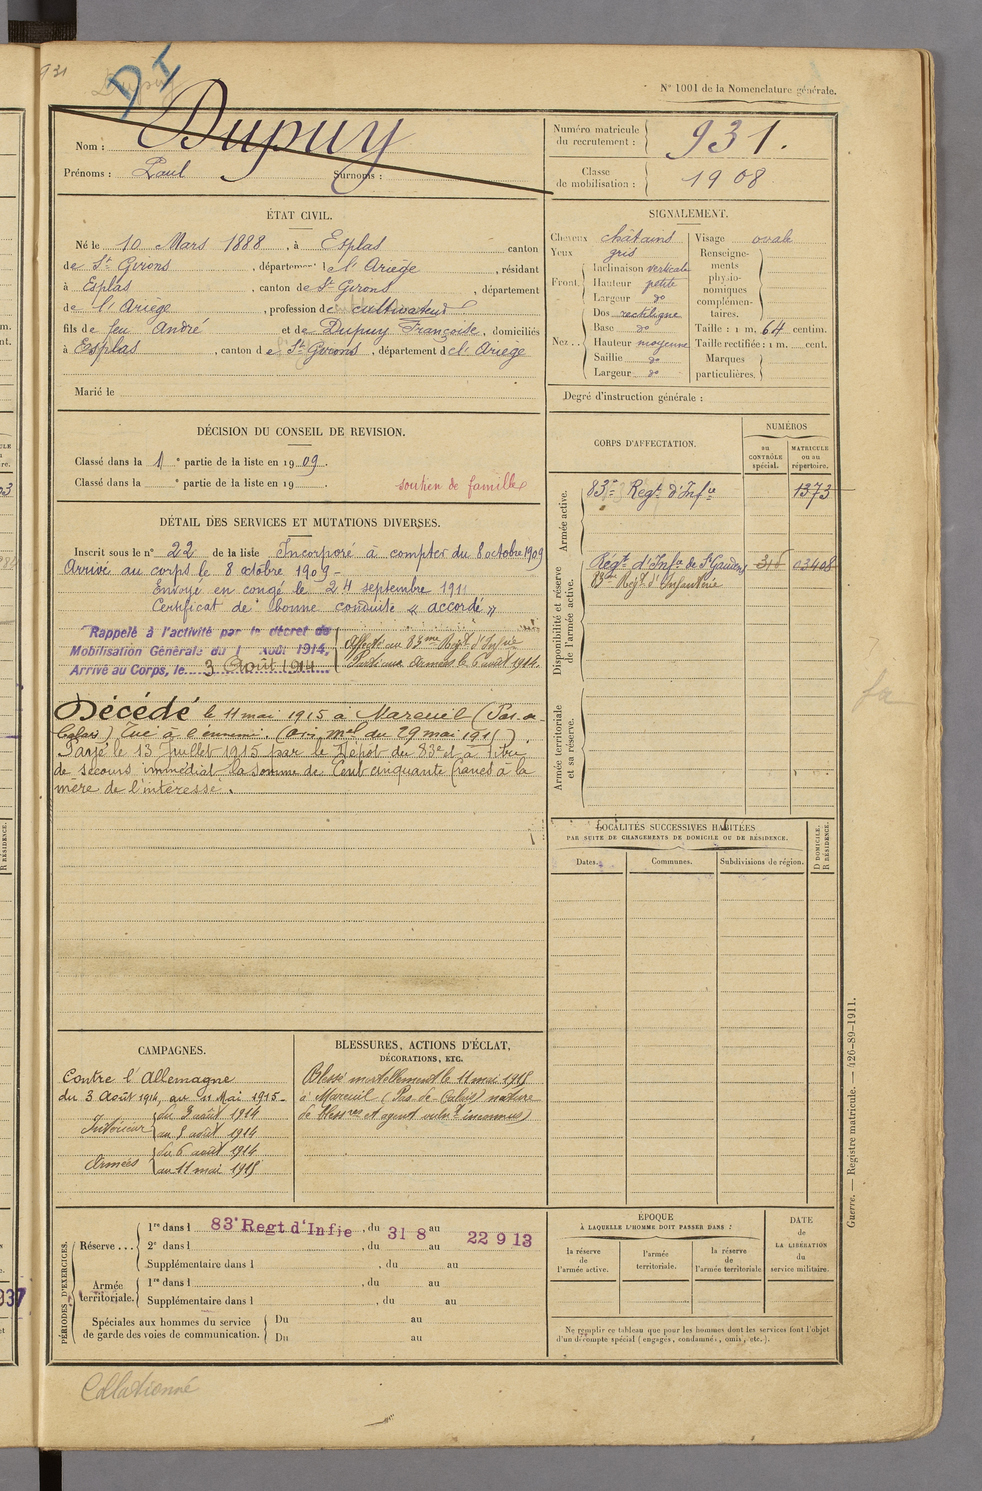 931
Dupuy
DI
N° 1001 de la Nomenclature générale.
Nom : Dupuy
Prénoms : Paul Surnoms :
Numéro matricule du recrutement : 931.
Classe de mobilisation : 1908
ÉTAT CIVIL.
Né le 10 Mars 1888, à Esplas canton
de St Girons, département de l'Ariège, résidant
à Esplas, canton de St Girons, département
de l'Ariège, profession de cultivateur
fils de feu André et de Dupuy Françoise, domiciliés
à Esplas, canton de St Girons, département de l'Ariège
Marié le
SIGNALEMENT.
Cheveux châtains
Yeux gris
Front Inclinaison verticale
Hauteur petite
Largeur do
Nez Dos rectiligne
Base do
Hauteur moyenne
Saillie do
Largeur do
Visage ovale
Renseignements physionomiques complémentaires.
Taille : 1 m, 64 centim.
Taille rectifiée : 1 m. cent.
Marques particulières.
Degré d'instruction générale :
DÉCISION DU CONSEIL DE REVISION.
Classé dans la 1e partie de la liste en 1909.
Classé dans la e partie de la liste en 19 .
soutien de famille
DÉTAIL DES SERVICES ET MUTATIONS DIVERSES.
Inscrit sous le n° 22 de la liste Incorporé à compter du 8 octobre 1909
Arrivé au corps le 8 octobre 1909 -
Envoyé en congé le 24 septembre 1911
Certificat de bonne conduite « accordé »
Rappelé à l'activité par le décret de
Mobilisation Générale du 1 Août 1914,
Arrivé au Corps, le 3 Août 1914
Affecté au 83me Regt d'Infie
Parti aux Armées le 6 août 1914.
Décédé le 11 mai 1915 à Mareuil (Pas-de-
Calais) Tué à l'ennemi. (Avis mel du 29 mai 1915)
Payé le 13 Juillet 1915 par le Dépôt du 83e d à titre
de secours immédiat la somme de Cent cinquante francs à la
mère de l'intéressé.
CORPS D'AFFECTATION.
NUMÉROS
au CONTRÔLE spécial.
MATRICULE ou au répertoire.
Armée active.
83e Regt d'Infie 1373
Disponibilité et réserve de l'armée active.
Régt d'Infie de St Gaudens 318 03408
83me Régt d'Infanterie
Armée territoriale et sa réserve.
fa
LOCALITÉS SUCCESSIVES HABITÉES
PAR SUITE DE CHANGEMENTS DE DOMICILE OU DE RÉSIDENCE.
Dates. Communes. Subdivisions de région.
D DOMICILE. R RÉSIDENCE.
CAMPAGNES.
Contre l'Allemagne
du 3 Août 1914, au 11 Mai 1915 -
Intérieur du 3 août 1914
au 5 août 1914
Armées du 6 août 1914
au 11 mai 1915
BLESSURES, ACTIONS D'ÉCLAT,
DÉCORATIONS, ETC.
Blessé mortellement le 11 mai 1915
à Mareuil (Pas-de-Calais) nature
de bless res et agent vulnt inconnus)
PÉRIODES D'EXERCICES.
Réserve ... 1re dans l 83e Regt d'Infie, du 31 8 au 22 9 13
2e dans l , du au
Supplémentaire dans l , du au
Armée territoriale. 1re dans l , du au
Supplémentaire dans l , du au
Spéciales aux hommes du service de garde des voies de communication. Du au
Du au
ÉPOQUE
À LAQUELLE L'HOMME DOIT PASSER DANS :
la réserve de l'armée active.
l'armée territoriale.
la réserve de l'armée territoriale
DATE de LA LIBÉRATION du service militaire.
Ne remplir ce tableau que pour les hommes dont les services font l'objet
d'un décompte spécial (engagés, condamnés, omis, etc.).
Guerre. — Registre matricule. — 426-89-1911.
Collationné